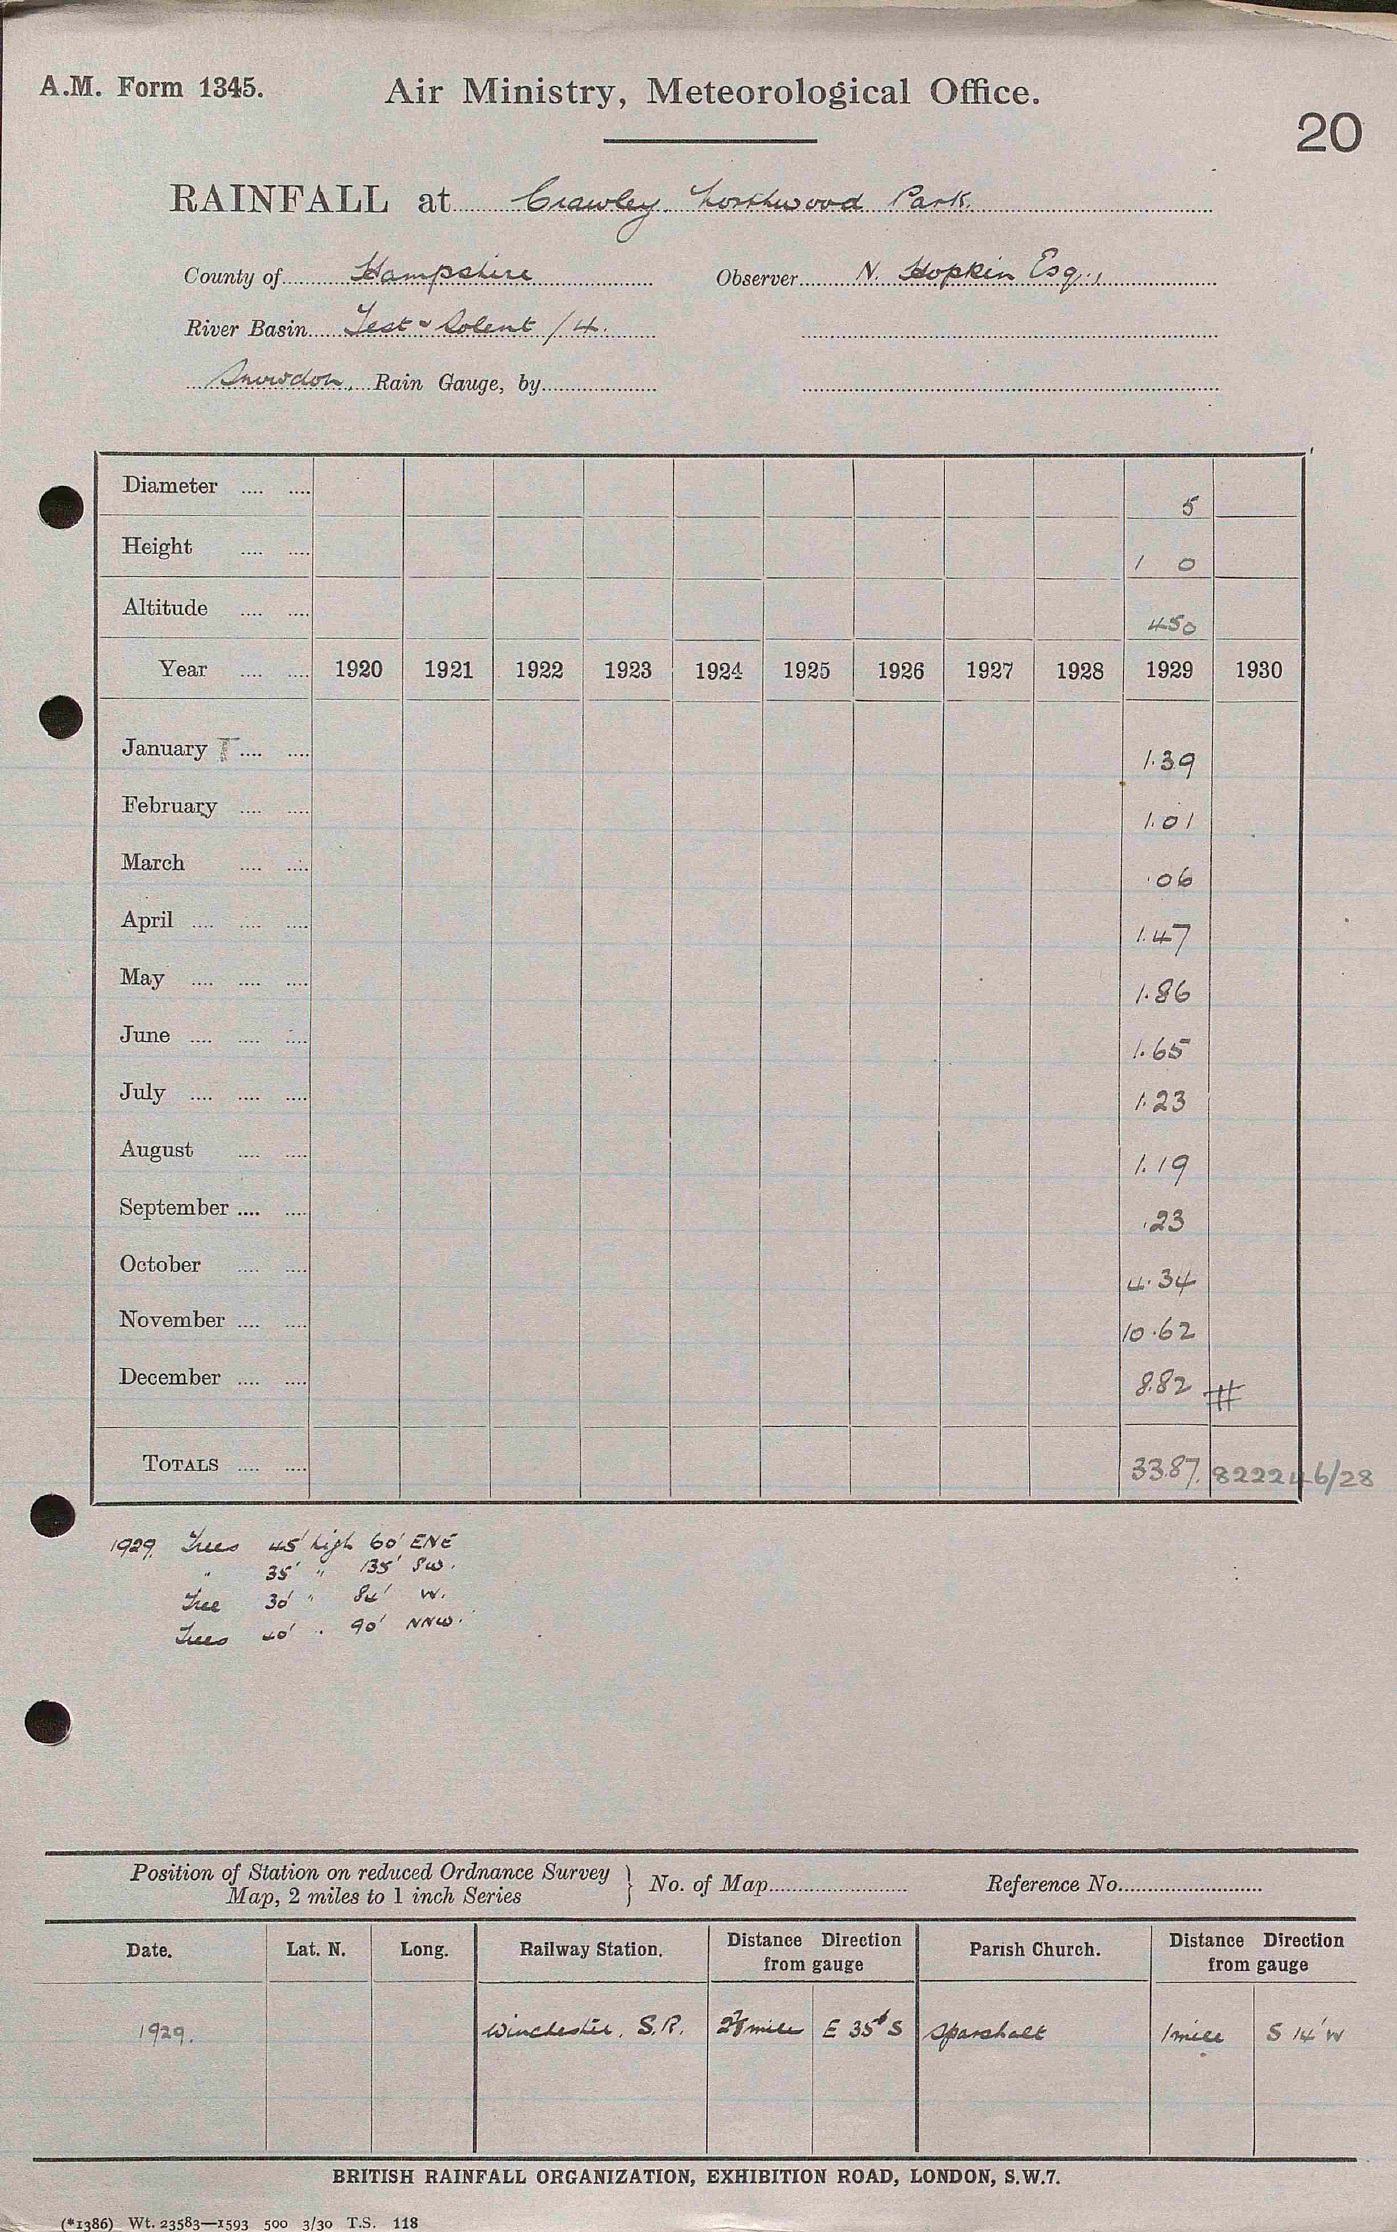 A.M. Form 1345.
Air Ministry, Meteorological Office.
20
RAINFALL at Crawley, Northwood Park.
County of Hampshire Observer N. Hopkin Esq.,
River Basin Test & Solent /4.
Snowdon. Rain Gauge, by
Diameter 5
Height 1 0
Altitude 450
Year 1920 1921 1922 1923 1924 1925 1926 1927 1928 1929 1930
January T 1.39
February 1.01
March .06
April 1.47
May 1.86
June 1.65
July 1.23
August 1.19
September .23
October 4.34
November 10.62
December 8.82 #
TOTALS 33.87. 822246/28
1929. Trees 45' high 60' ENE
" 35' " 135' SW.
Tree 30' " 84' W.
Trees 40' " 90' NNW.
Position of Station on reduced Ordnance Survey
Map, 2 miles to 1 inch Series } No. of Map Reference No.
Date. Lat. N. Long. Railway Station. Distance Direction from gauge Parish Church. Distance Direction from gauge
1929. Winchester, S.R. mile E 35° S Sparsholt 1 mile S 14° W
BRITISH RAINFALL ORGANIZATION, EXHIBITION ROAD, LONDON, S.W.7.
(*1386) Wt. 23583—1593 500 3/30 T.S. 118